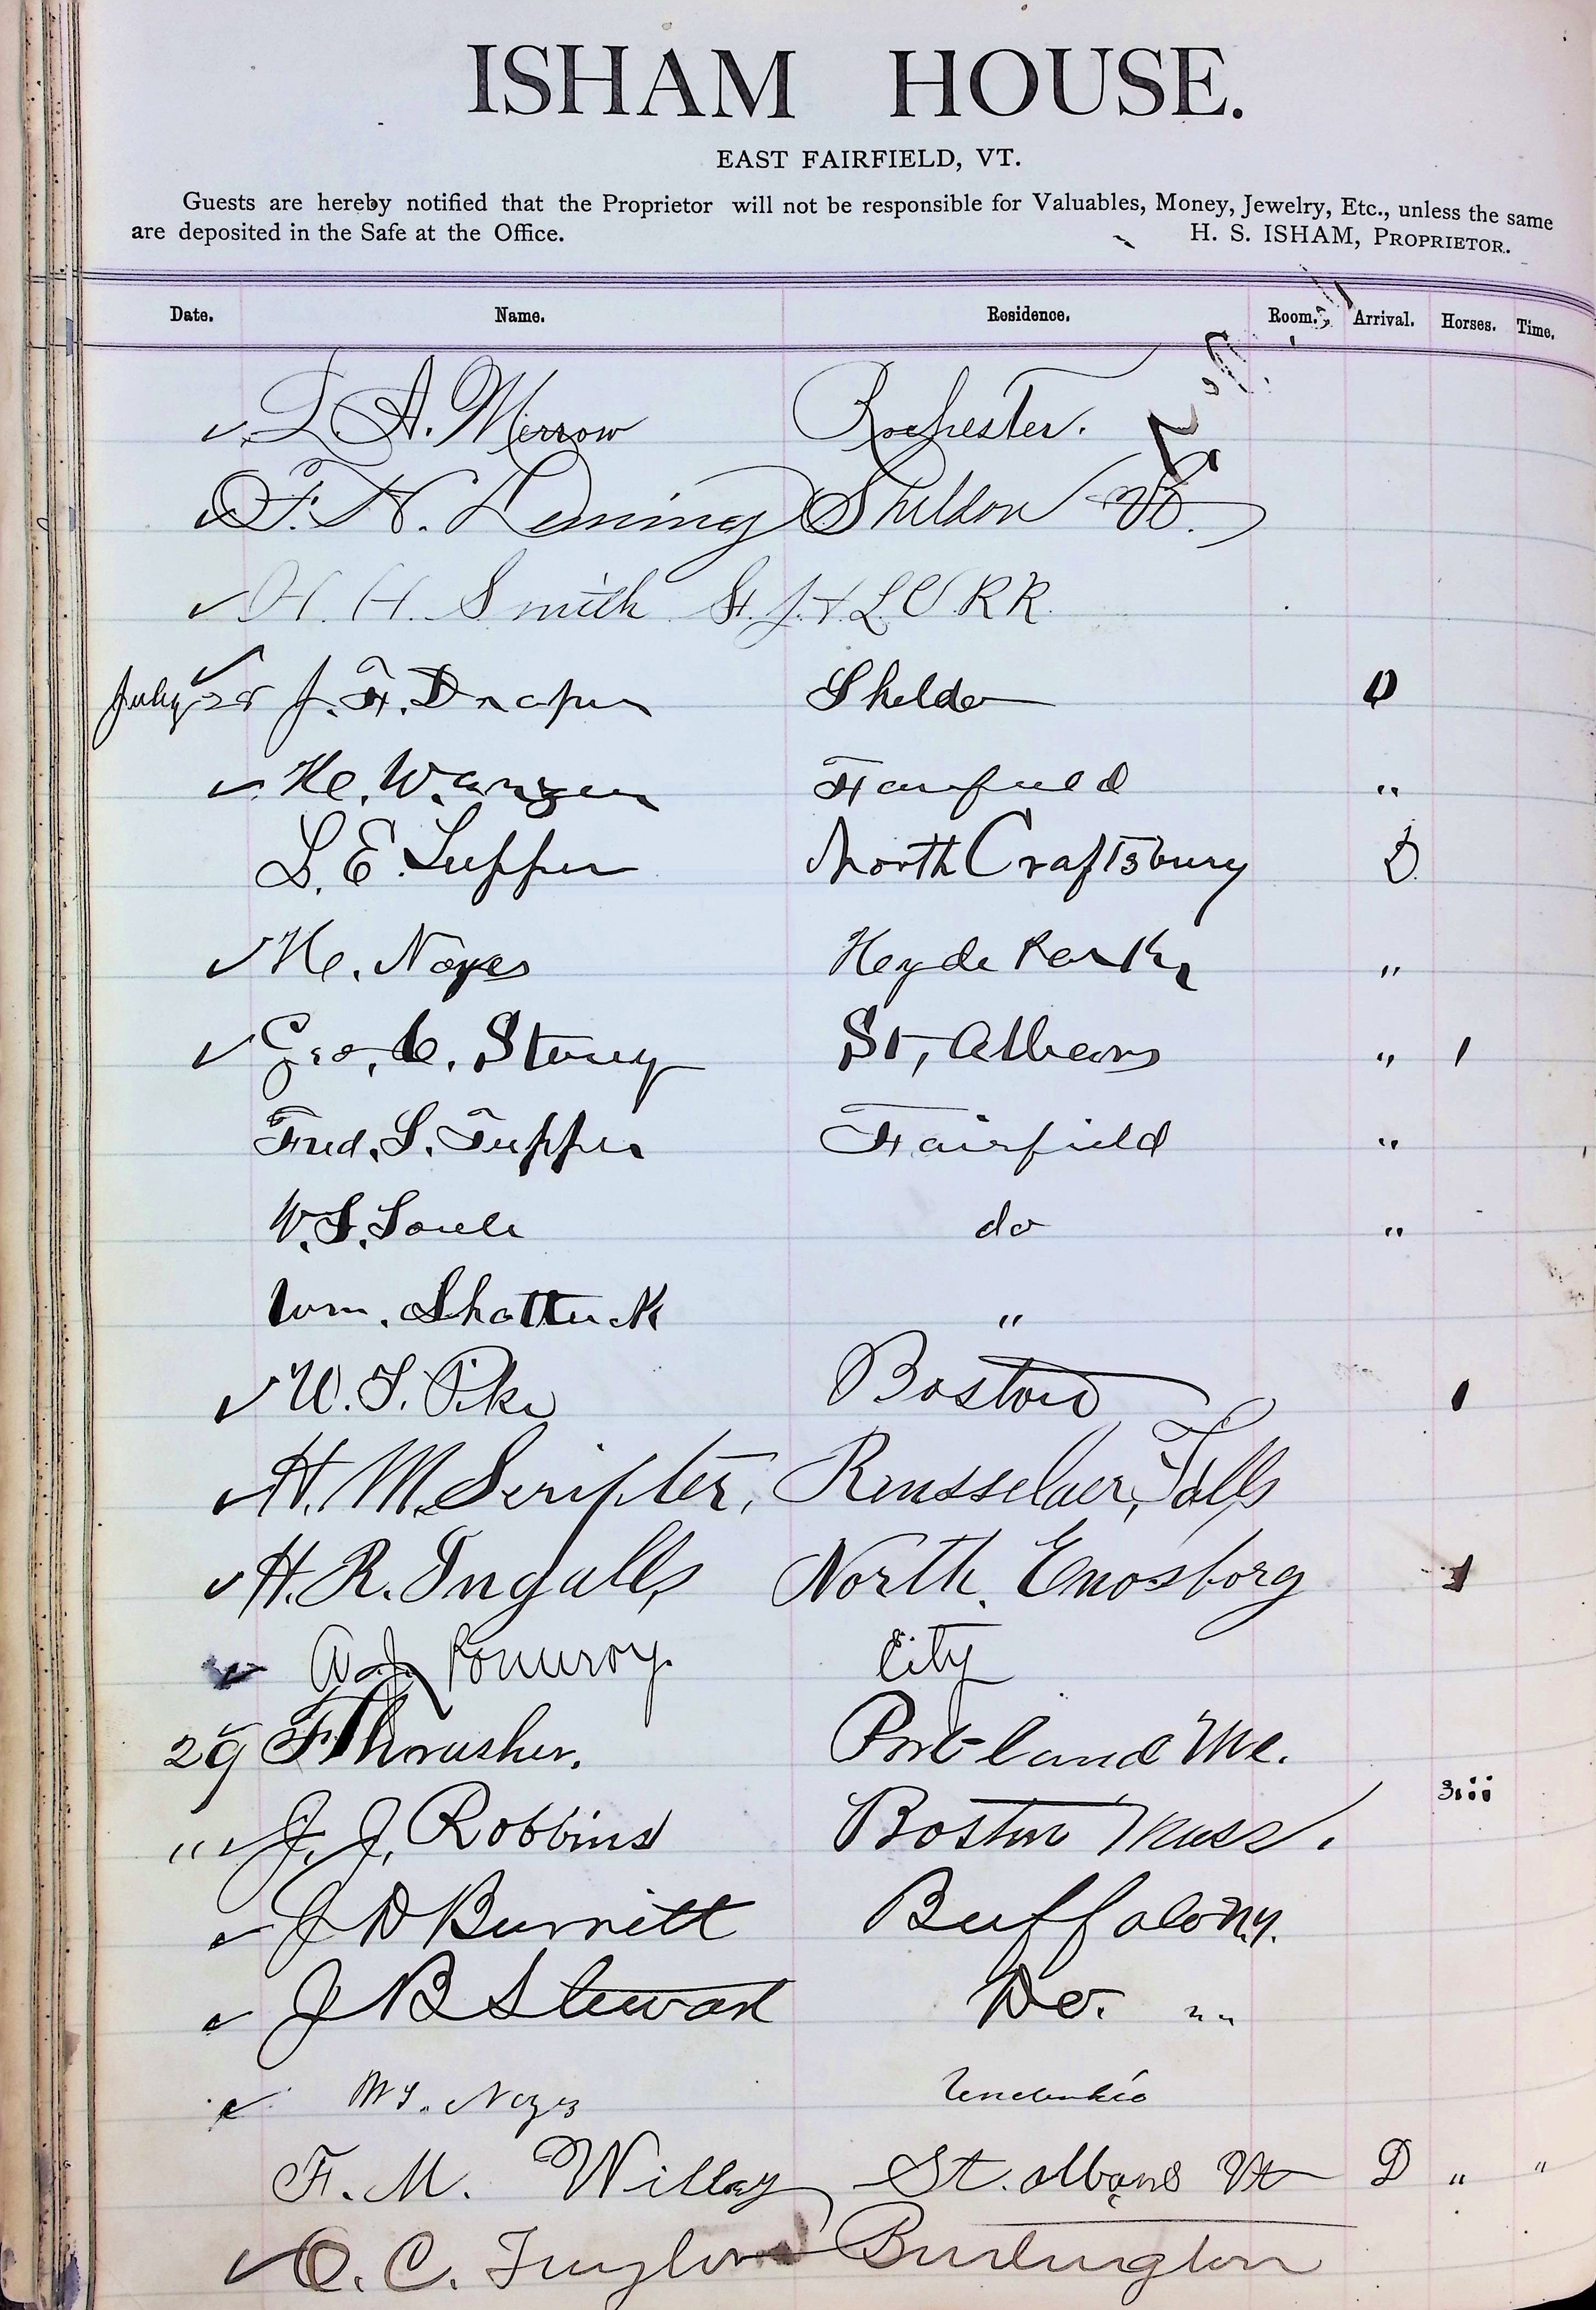 ISHAM HOUSE.
EAST FAIRFIELD, VT.
Guests are hereby notified that the Proprietor will not be responsible for Valuables, Money, Jewelry, Etc., unless the same
are deposited in the Safe at the Office. H. S. ISHAM, PROPRIETOR.
Date. Name. Residence. Room. Arrival. Horses. Time.
✓ L A. Merrow Rochester.
✓ F. N. Deming Sheldon Vt.
✓ H. H. Smith St. J. & L C R R.
July 28 ✓ J. F. Draper Sheldon D
✓ H. Wanzer Fairfield "
L. E. Tupper North Craftsbury D.
✓ H. Noyes Heyde Park "
✓ Geo. C. Story St, Albans " 1
Fred. L. Tupper Fairfield "
W. S. Soule do "
Wm. Shattuck "
✓ W. S. Pike Boston 1
✓ H. M. Scripter, Rensselaer, Falls
✓ H. R. Ingalls North. Enosborg 1
✓ A. J. Pomeroy. City
29 ✓ F Thrasher. Portland Me.
" ✓ J. J. Robbins Boston Mass. 3
✓ J D Burritt Buffalo N.Y.
✓ J B Stewart Do. " "
✓ Noyes
F. M. Willey St. Albans Vt D " "
✓ C. C. Taylor Burlington